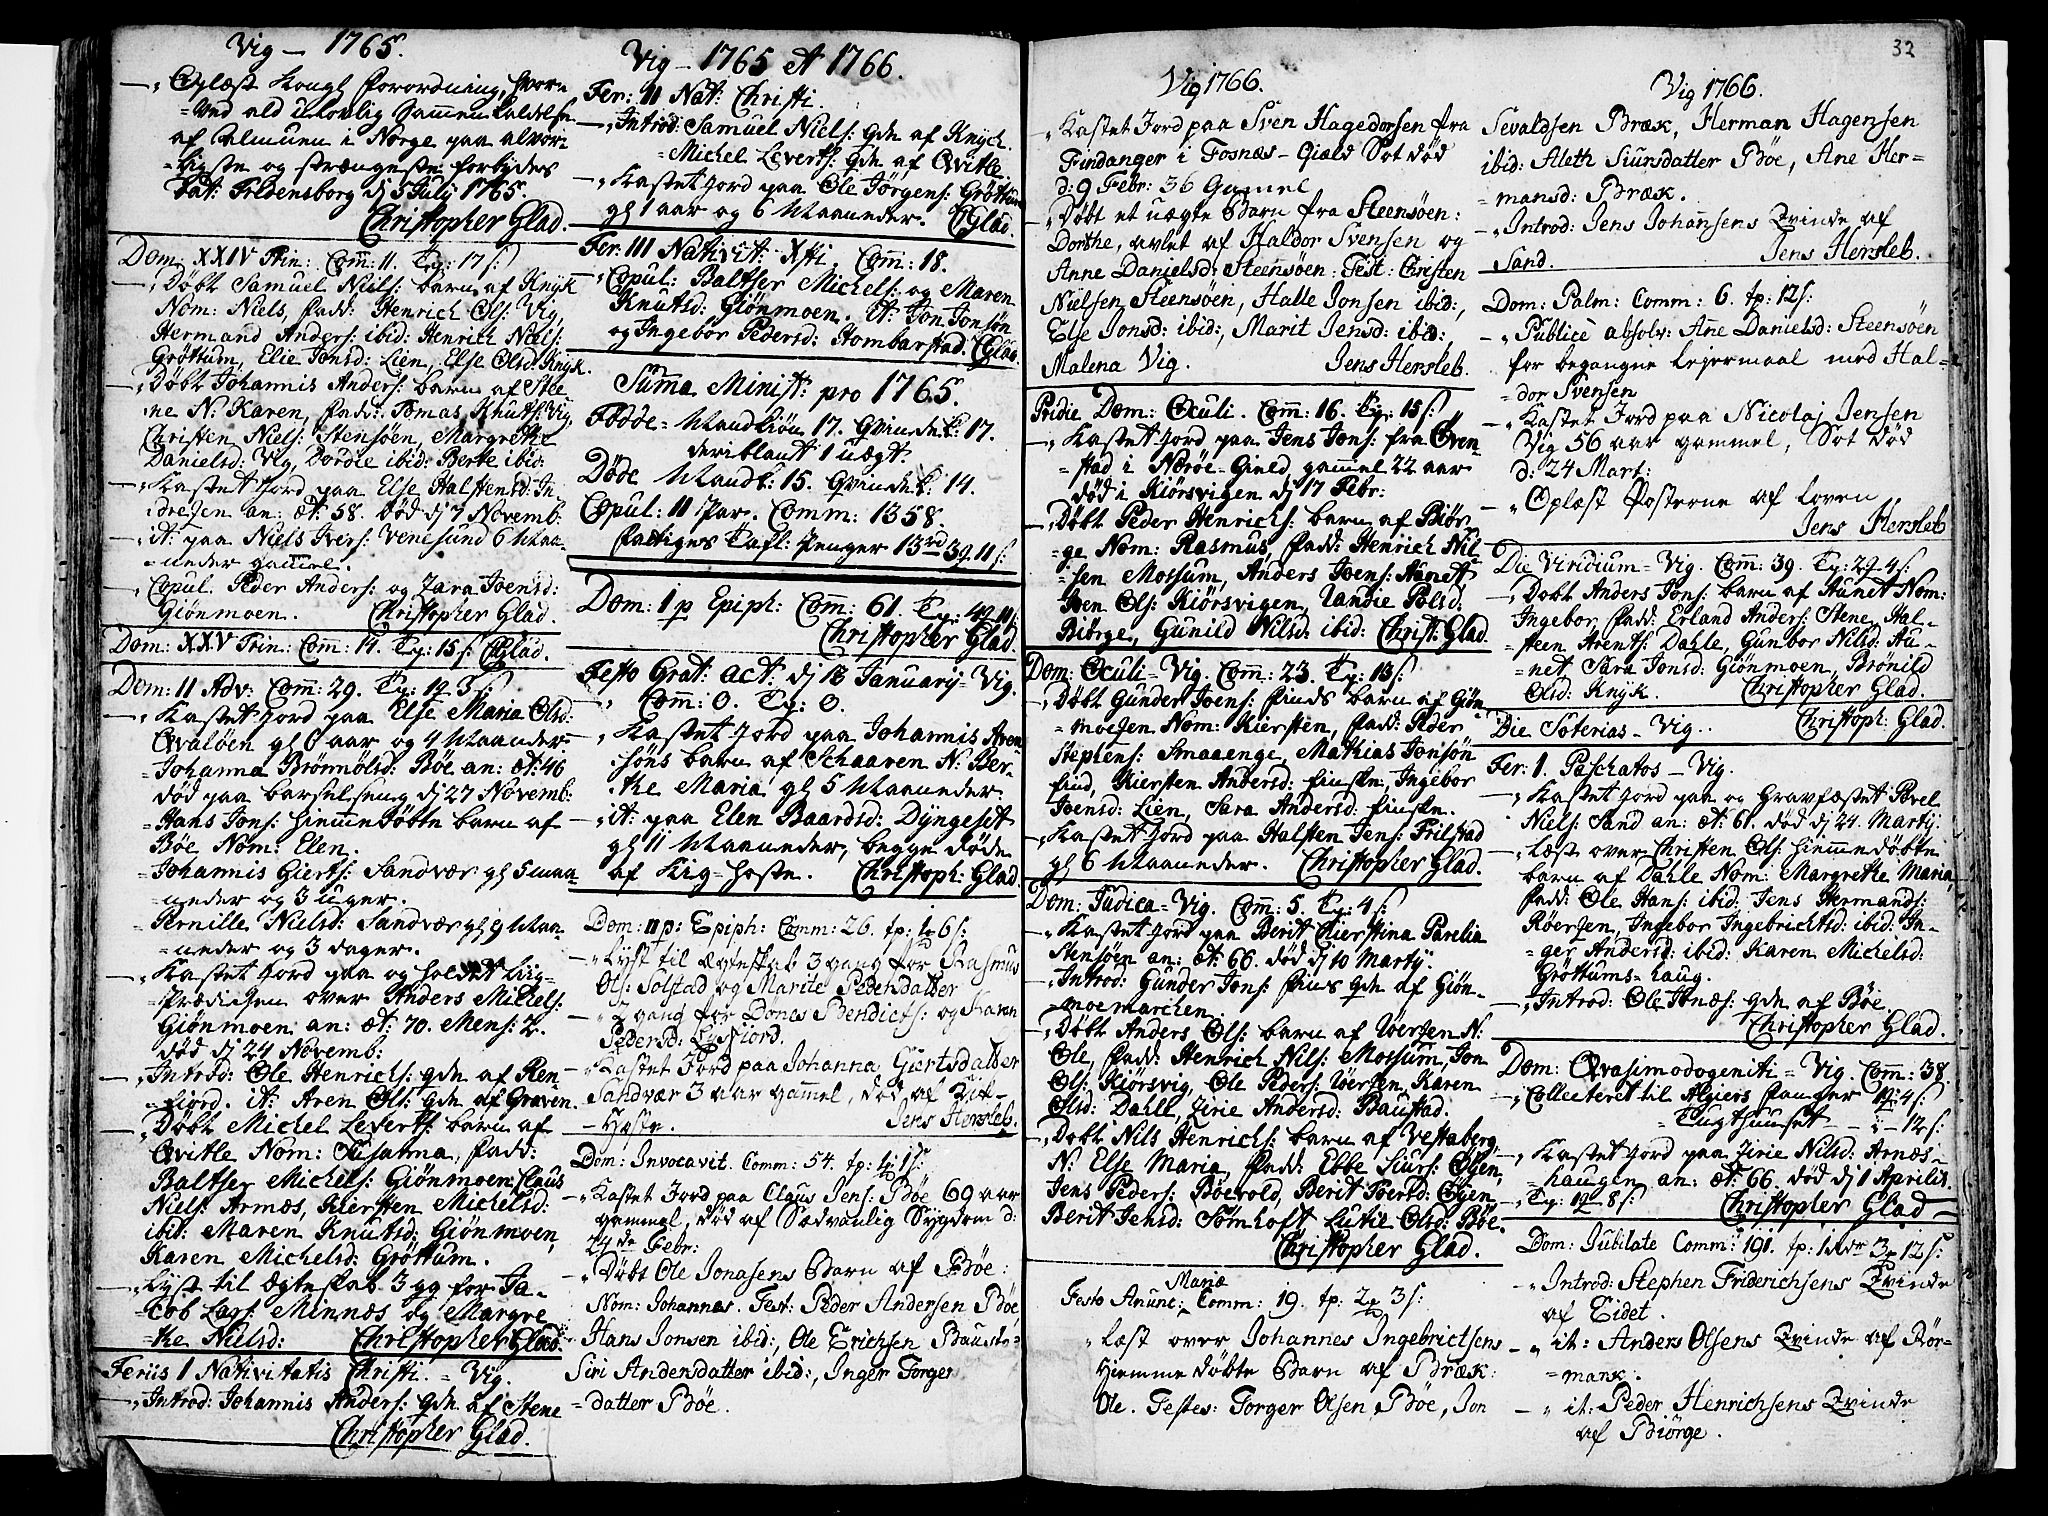 Vig – 1765.
„ Oplæst Kongl Forordning, hvor-
=ved ald ulovlig Sammenkaldelse
af Almuen i Norge paa alvor-
=ligste og strængeste forbydes
Dat: Fredensborg d 5 July 1765.
Christopher Glad.
Dom: XXIV Trin: Com: 11. Tp: 17 s:
„ Døbt Samuel Niels: barn af Knyk
Nom: Niels, fadd: Henrich Ols: Vig,
Hermand Anders: ibid: Henrich Niels:
Grøttum, Elie Jonsd: Lien, Else Olsd: Knyk.
„ Døbt Johannis Anders: barn af Ste-
ne N: Karen, fadd: Tomas Knuts: Vig,
Christen Niels: Stensøen, Margrethe
Danielsd: Vig, Dordie ibid: Berte ibid:
„ Kastet Jord paa Else Halstensd: In-
dreJen an: æt: 58. død d 7 Novemb:
„ it: paa Niels Ivers: Venesund 6 Maa-
=neder gamel.
„ Copul. Peder Anders: og Zara Joensd:
Giønmoen. Christopher Glad.
Dom: XXV Trin: Com: 14. Tp: 15 s: CGlad.
Dom: 11 Adv: Com: 29. Tp: 12 3 s:
„ Kastet Jord paa Else Maria Olsd:
Qvaløen gl 6 aar og 4 Maaneder
=Johanna Brønnølsd: Bøe an: æt: 46
død paa barselseng d 27 Novemb:
=Hans Jons: hiemmedøbte barn af
Bøe Nom: Elen.
=Johannis Gierts: Sandvær gl 5 maa-
=neder og 3 uger.
=Pernille Nielsd: Sandvær gl 9 Maa-
=neder og 3 dager.
„ Kastet Jord paa og holdet Liig-
=Prædiken over Anders Michels:
Giønmoen an: æt: 70. Mens: 2.
død d 24 Novemb:
„ Introd: Ole Henrichs: qdn af Ren-
=fiord. it: Aren Ols: qdn af Graven.
„ Døbt Michel Leverts: barn af
Qvitle Nom: Susanna, fadd:
Baltser Michels: Giønmoen, Claus
Niels: Arnæs, Kiersten Michelsd:
ibid: Maren Knutsd: Giønmoen,
Karen Michelsd: Grøttum.
„ Lyst til ægteskab 3 gg for Ja-
=cob Lars: Mennæs og Margre-
=the Nielsd: Christopher Glad.
Feriis 1 Nativitatis Christi. = Vig.
„ Introd: Johannis Anders: qdn af Stene
Christopher Glad.
Vig – 1765 et 1766.
Fer: 11 Nat: Christi.
„ Introd: Samuel Niels: qdn af Knyck.
=Michel Leverts: qdn af Qvitle.
„ Kastet Jord paa Ole Jørgens: Grøttum
gl 1 aar og 6 Maaneder. CGlad.
Fer: III Nativit: Xsti. Com: 18.
„ Copul: Baltser Michels: og Maren
Knutsd: Giønmoen. it: Jon Jonsøn
og Ingebor Pedersd: Hombarstad. CGlad.
Suma Minist: pro 1765.
Fødde= Mandkiøn 17. Qvindek: 17.
deriblandt 1 uægt.
Døde Mandk: 15. Qvindek: 14.
Copul: 11 Par. Comm: 1358.
Fattiges Tafl: Penger 13 rd 3 q 11 s:
Dom: 1 p Epiph: Com: 61. Tp: 42 11 s:
Christopher Glad.
Festo Grat: act: d 18 January = Vig.
„ Com: 0. Tp: 0.
„ Kastet Jord paa Johannis Aren-
søns barn af Schaaren N: Ber-
the Maria gl 5 Maaneder.
„ it: paa Elen Baardsd: Dyngeset
gl 11 Maaneder, begge døde
af Kig=hoste. Christoph: Glad.
Dom: 11 p: Epiph: Comm: 26. tp: 1 q 6 s:
„ Lyst til ægteskab 3 gang for Rasmus
Ols: Solstad og Marite Pedersdatter
„ 2 gang for Dones Bendicts: og Karen
Pedersd: Lysfiord.
„ Kastet Jord paa Johanna Giertsdatter
Sandvær 3 aar gammel, død af Kik-
-Hoste. Jens Hersleb.
Dom: Invocavit. Comm: 54. tp: 1 q 1 s:
„ Kastet Jord paa Claus Jens: Bøe 69 aar
gammel, død af Sædvanlig Sygdom d:
24de Febr:
„ Døbt Ole Jonasens Barn af Bøe:
Nom: Johannes. Test: Peder Andersen Bøe,
Hans Jonsen ibid:, Ole Erichsen Bausta-
Siri Andersdatter ibid:, Inger Torger
=datter Bøe.
Vig 1766.
„ Kastet Jord paa Sven Hagedorsen fra
Findanger i Fosnæs-Giæld Sot død
d: 9 Febr: 36 Gamel
„ Døbt et uægte Barn fra Steensøen:
Dorthe, avlet af Haldor Svensen og
Anne Danielsd: Steensøen: Test: Christen
Nielsen Steensøen, Halle Jonsen ibid:,
Else Jonsd: ibid:, Marit Jensd: ibid:,
Malena Vig. Jens Hersleb.
Pridie Dom: Oculi. Com: 16. Tp: 15 s:
„ Kastet Jord paa Jens Jons: fra Øven-
=stad i Nærøe=Gield, gammel 22 aar
død i Kiørsvigen d 17 Febr:
„ Døbt Peder Henrichs: barn af Biør-
=ge Nom: Rasmus, fadd: Henrich Nil-
=sen Mossum, Anders Joens: Aunet
Joen Ols: Kiørsvigen, Vandie Polsd:
Biørge, Gunild Nilsd: ibid: Christ: Glad.
Dom: Oculi = Vig. Com: 23. Tp: 13 s:
„ Døbt Gunder Joens: Finds barn af Giøn-
=moeJen Nom: Kiersten, fadd: Peder
Stephens: Smaaenge, Mathias Jonsøn
find, Kiersten Andersd: finsken, Ingebor
Joensd: Lien, Sara Andersd: finsken.
„ Kastet Jord paa Halsten Jens: Frilstad
gl 6 Maaneder. Christopher Glad.
Dom: Judica = Vig. Com: 5. Tp: 4 s:
„ Kastet Jord paa Berit Chierstina Parelia
Stensøen an: æt: 66. død d 10 Marty.
„ Introd: Gunder Jons: Fins qdn af Giøn-
=moemarchen.
„ Døbt Anders Ols: barn af VoerJen N:
Ole, fadd: Henrich Nils: Mossum, Jon
Ols: Kiørsvig, Ole Peders: VoerJen, Karen
Olsd: Dahle, Zirie Andersd: Baustad.
„ Døbt Nils Henrichs: barn af Vestaberg
N: Else Maria, fadd: Ebbe Siurs: Øyen,
Jens Peders: Bøevold, Berit Joersd: Øyen,
Berit Jensd: Sømhoft Lutie Olsd: Bøe.
Christopher Glad.
Festo Anunc: Mariæ Comm: 19. tp: 2 q 3 s:
„ Læst over Johannes Ingebrictsens
Hiemme døbte Barn af Bræk:
Ole. Testes: Torger Olsen Bøe, Jon
32
Vig 1766.
Sevaldsen Bræk, Herman Hagensen
ibid: Aleth Siursdatter Bøe, Ane Her-
mansd: Bræk.
„ Introd: Jens Johansens Qvinde af
Sand. Jens Hersleb.
Dom: Palm: Comm: 6. tp: 12 s:
„ Publicè absolv: Ane Danielsd: Steensøen
for begangne Lejermaal med Hal-
=dor Svensen
„ Kastet Jord paa Nicolaj Jensen
Vig 56 aar gammel, Sot død
d: 24 Mart:
„ Oplæst Posterne af Loven
Jens Hersleb
Die Viridium = Vig. Com: 39. Tp: 2 q 4 s:
„ Døbt Anders Jons: barn af Aunet Nom:
Ingebor, fadd: Erland Anders: Stene, Hal-
=steen Arents: Dahle, Gunbor Nilsd: Au-
=net Sara Jonsd: Giønmoen, Brønild
Olsd: Knyk. Christopher Glad.
Die Soterias – Vig. Christoph: Glad.
Fer: 1. Paschatos – Vig.
„ Kastet Jord paa og Gravfæstet Povel
Niels: Sand an: æt: 61. død d 24. Marty.
„ Læst over Christen Ols: hiemmedøbte
barn af Dahle Nom: Margrethe Maria,
fadd: Ole Hans: ibid: Jens Hermands:
RøerJen, Ingebor Ingebrichtsd: ibid: In-
=ger Andersd: ibid: Karen Michelsd:
Grøttums=haug.
„ Introd: Ole Jonæs: qdn af Bøe.
Christopher Glad.
Dom: Qvasimodogeniti = Vig. Com: 38.
„ Collecteret til Algiers Fanger 1 q: 4 s:
=Tugthuuset – „ – 12 s:
„ Kastet Jord paa Zirie Nilsd: Arnæs-
=haugen an: æt: 66. død d 1 Aprilis.
„ Tp: 1 q 8 s: Christopher Glad
Dom: Jubilate Comm: 191. tp: 1 Rdr 3 q 12 s:
„ Introd: Stephen Friderichsens Qvinde
af Eidet.
„ it: Anders Olsens Qvinde af Rør-
=mark.
„ it: Peder Henrichsens Qvinde
af Biørge.